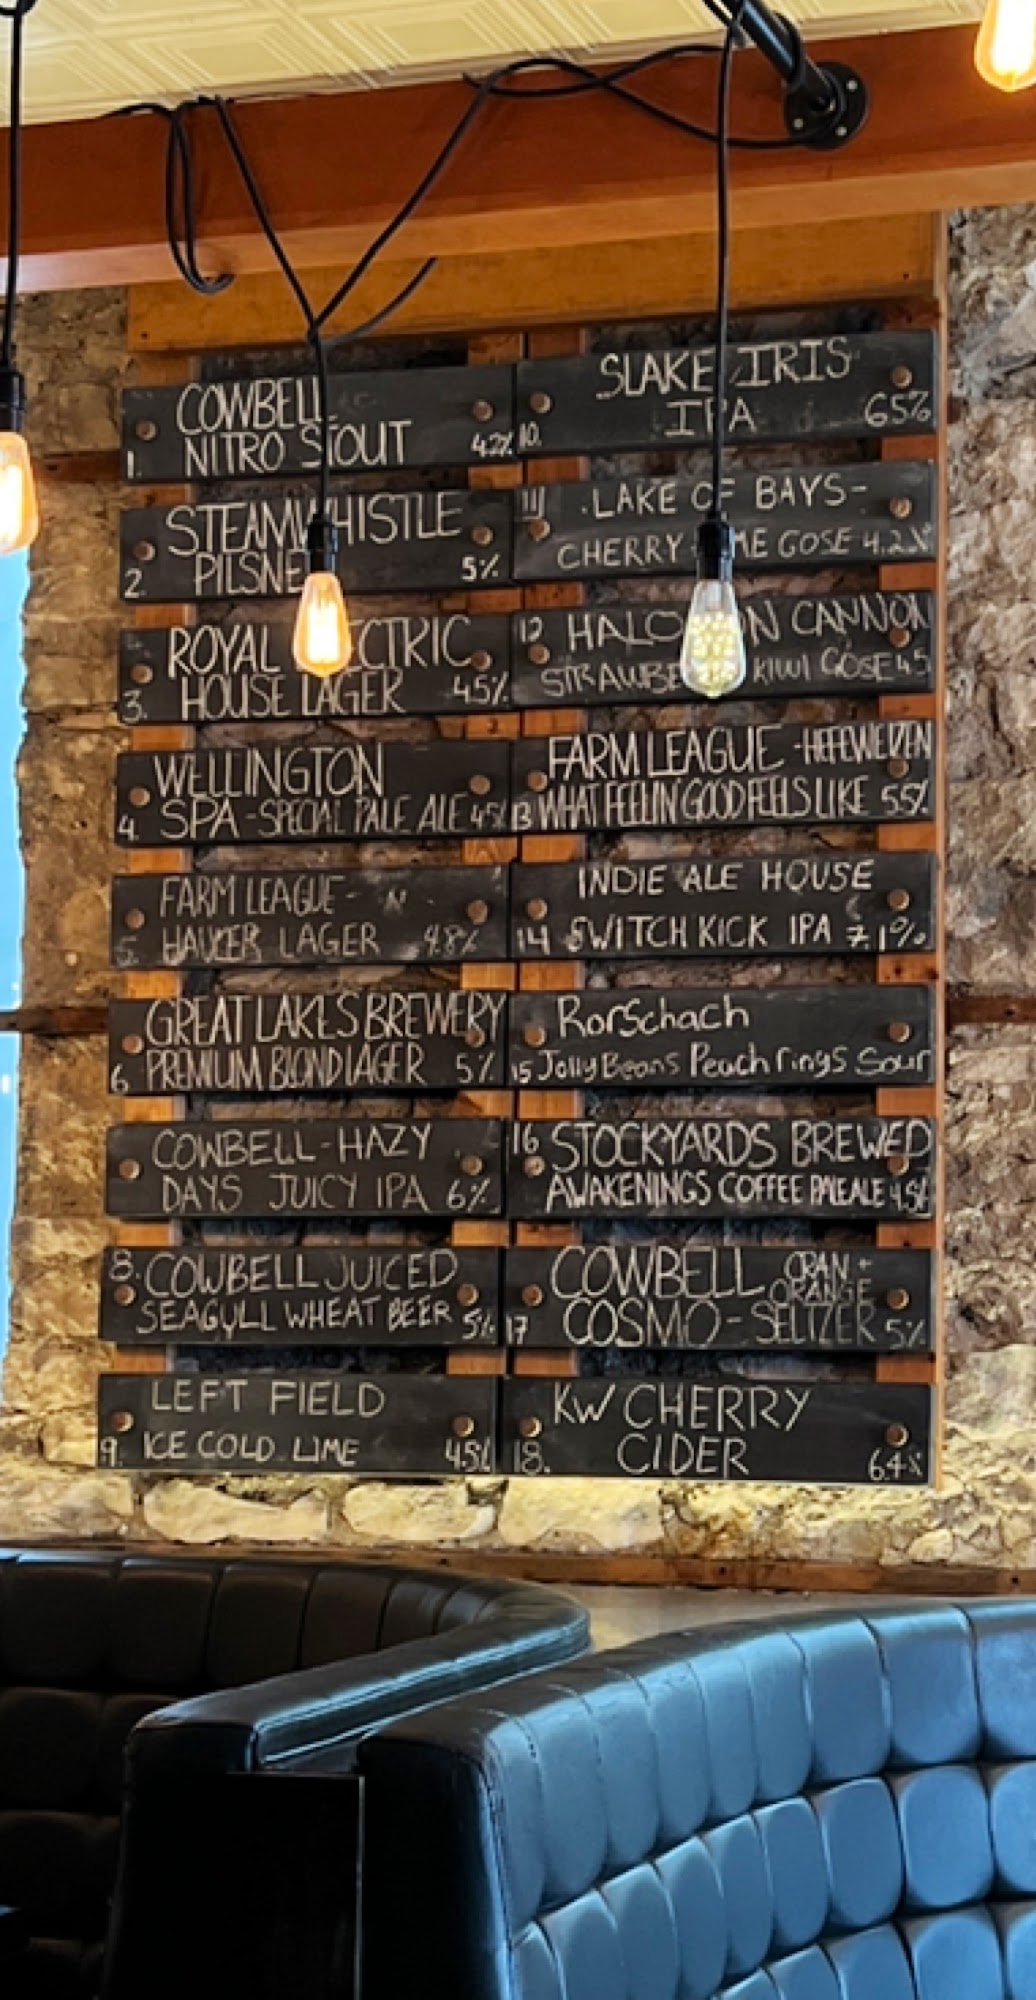 COWBELL
1. NITRO STOUT 4.2%
STEAMWHISTLE
2. PILSNE 5%
ROYAL ECTRIC
3. HOUSE LAGER 4.5%
WELLINGTON
4. SPA - SPECIAL PALE ALE 4.5%
FARM LEAGUE -
5. LAGER 4.8%
GREAT LAKES BREWERY
6 PREMIUM BLOND LAGER 5%
COWBELL - HAZY
DAYS JUICY IPA 6%
8. COWBELL JUICED
SEAGULL WHEAT BEER 5%
LEFT FIELD
9. ICE COLD LIME 4.5%
SLAKE IRIS
10. IPA 6.5%
11 . LAKE OF BAYS -
CHERRY ME GOSE 4.2%
12 HALO ON CANNON
STRAWBE KIWI GOSE 4.5
FARM LEAGUE - HEFEWEIZEN
13 WHAT FEELIN GOOD FEELS LIKE 5.5%
INDIE ALE HOUSE
14 SWITCH KICK IPA 7.1%
Rorschach
15 Jolly Beans Peach rings Sour
16 STOCKYARDS BREWED
AWAKENINGS COFFEE PALE ALE 4.5%
COWBELL CRAN +
ORANGE
17 COSMO - SELTZER 5%
KW CHERRY
18. CIDER 6.4%